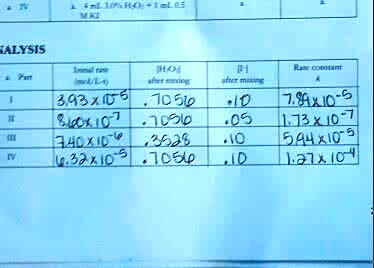 a. IV a. 4 mL 3.0% H₂O₂ + 1 mL 0.5 a. a.
M KI
NALYSIS
a. Part Initial rate (mol/L·s) [H₂O₂] after mixing [I⁻] after mixing Rate constant k
I 3.93 x 10⁻⁵ .7056 .10 7.89 x 10⁻⁵
II 8.60 x 10⁻⁷ .7056 .05 1.73 x 10⁻⁷
III 7.40 x 10⁻⁶ .3528 .10 5.94 x 10⁻⁵
IV 6.32 x 10⁻⁵ .7056 .10 1.27 x 10⁻⁴